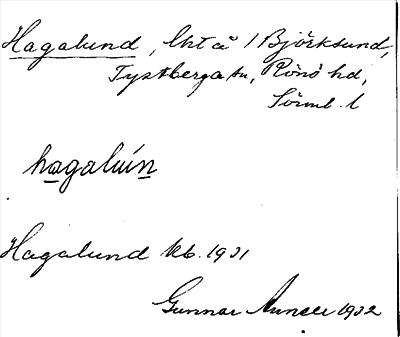 Hagalund, lht å / Björksund,
Tystberga sn, Rönö hd,
Sörml. l
hagaluín
Hagalund kb. 1931
Gunnar 1932